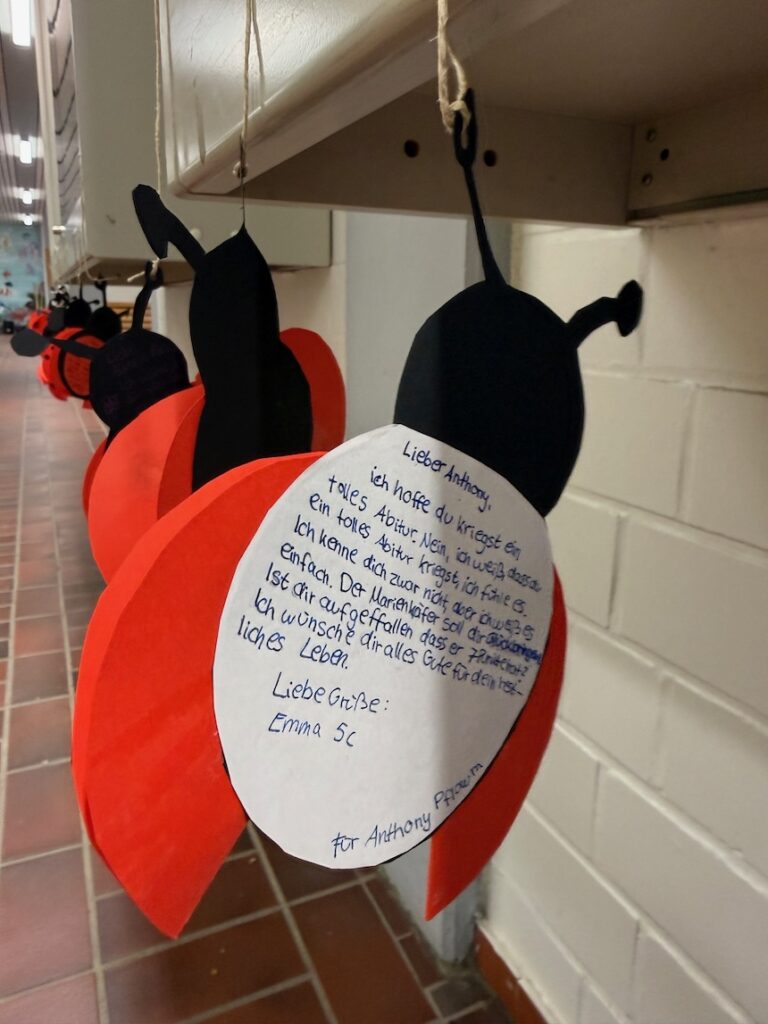 Lieber Anthony,
ich hoffe du kriegst ein
tolles Abitur. Nein, ich weiß, dass du
ein tolles Abitur kriegst, ich fühle es.
Ich kenne dich zwar nicht, aber ich weiß es
einfach. Der Marienkäfer soll dir Glück bringen.
Ist dir aufgeffallen dass er 7 Punkte hat?
Ich wünsche dir alles Gute für dein rest-
liches Leben.
Liebe Grüße:
Emma 5c
Für Anthony